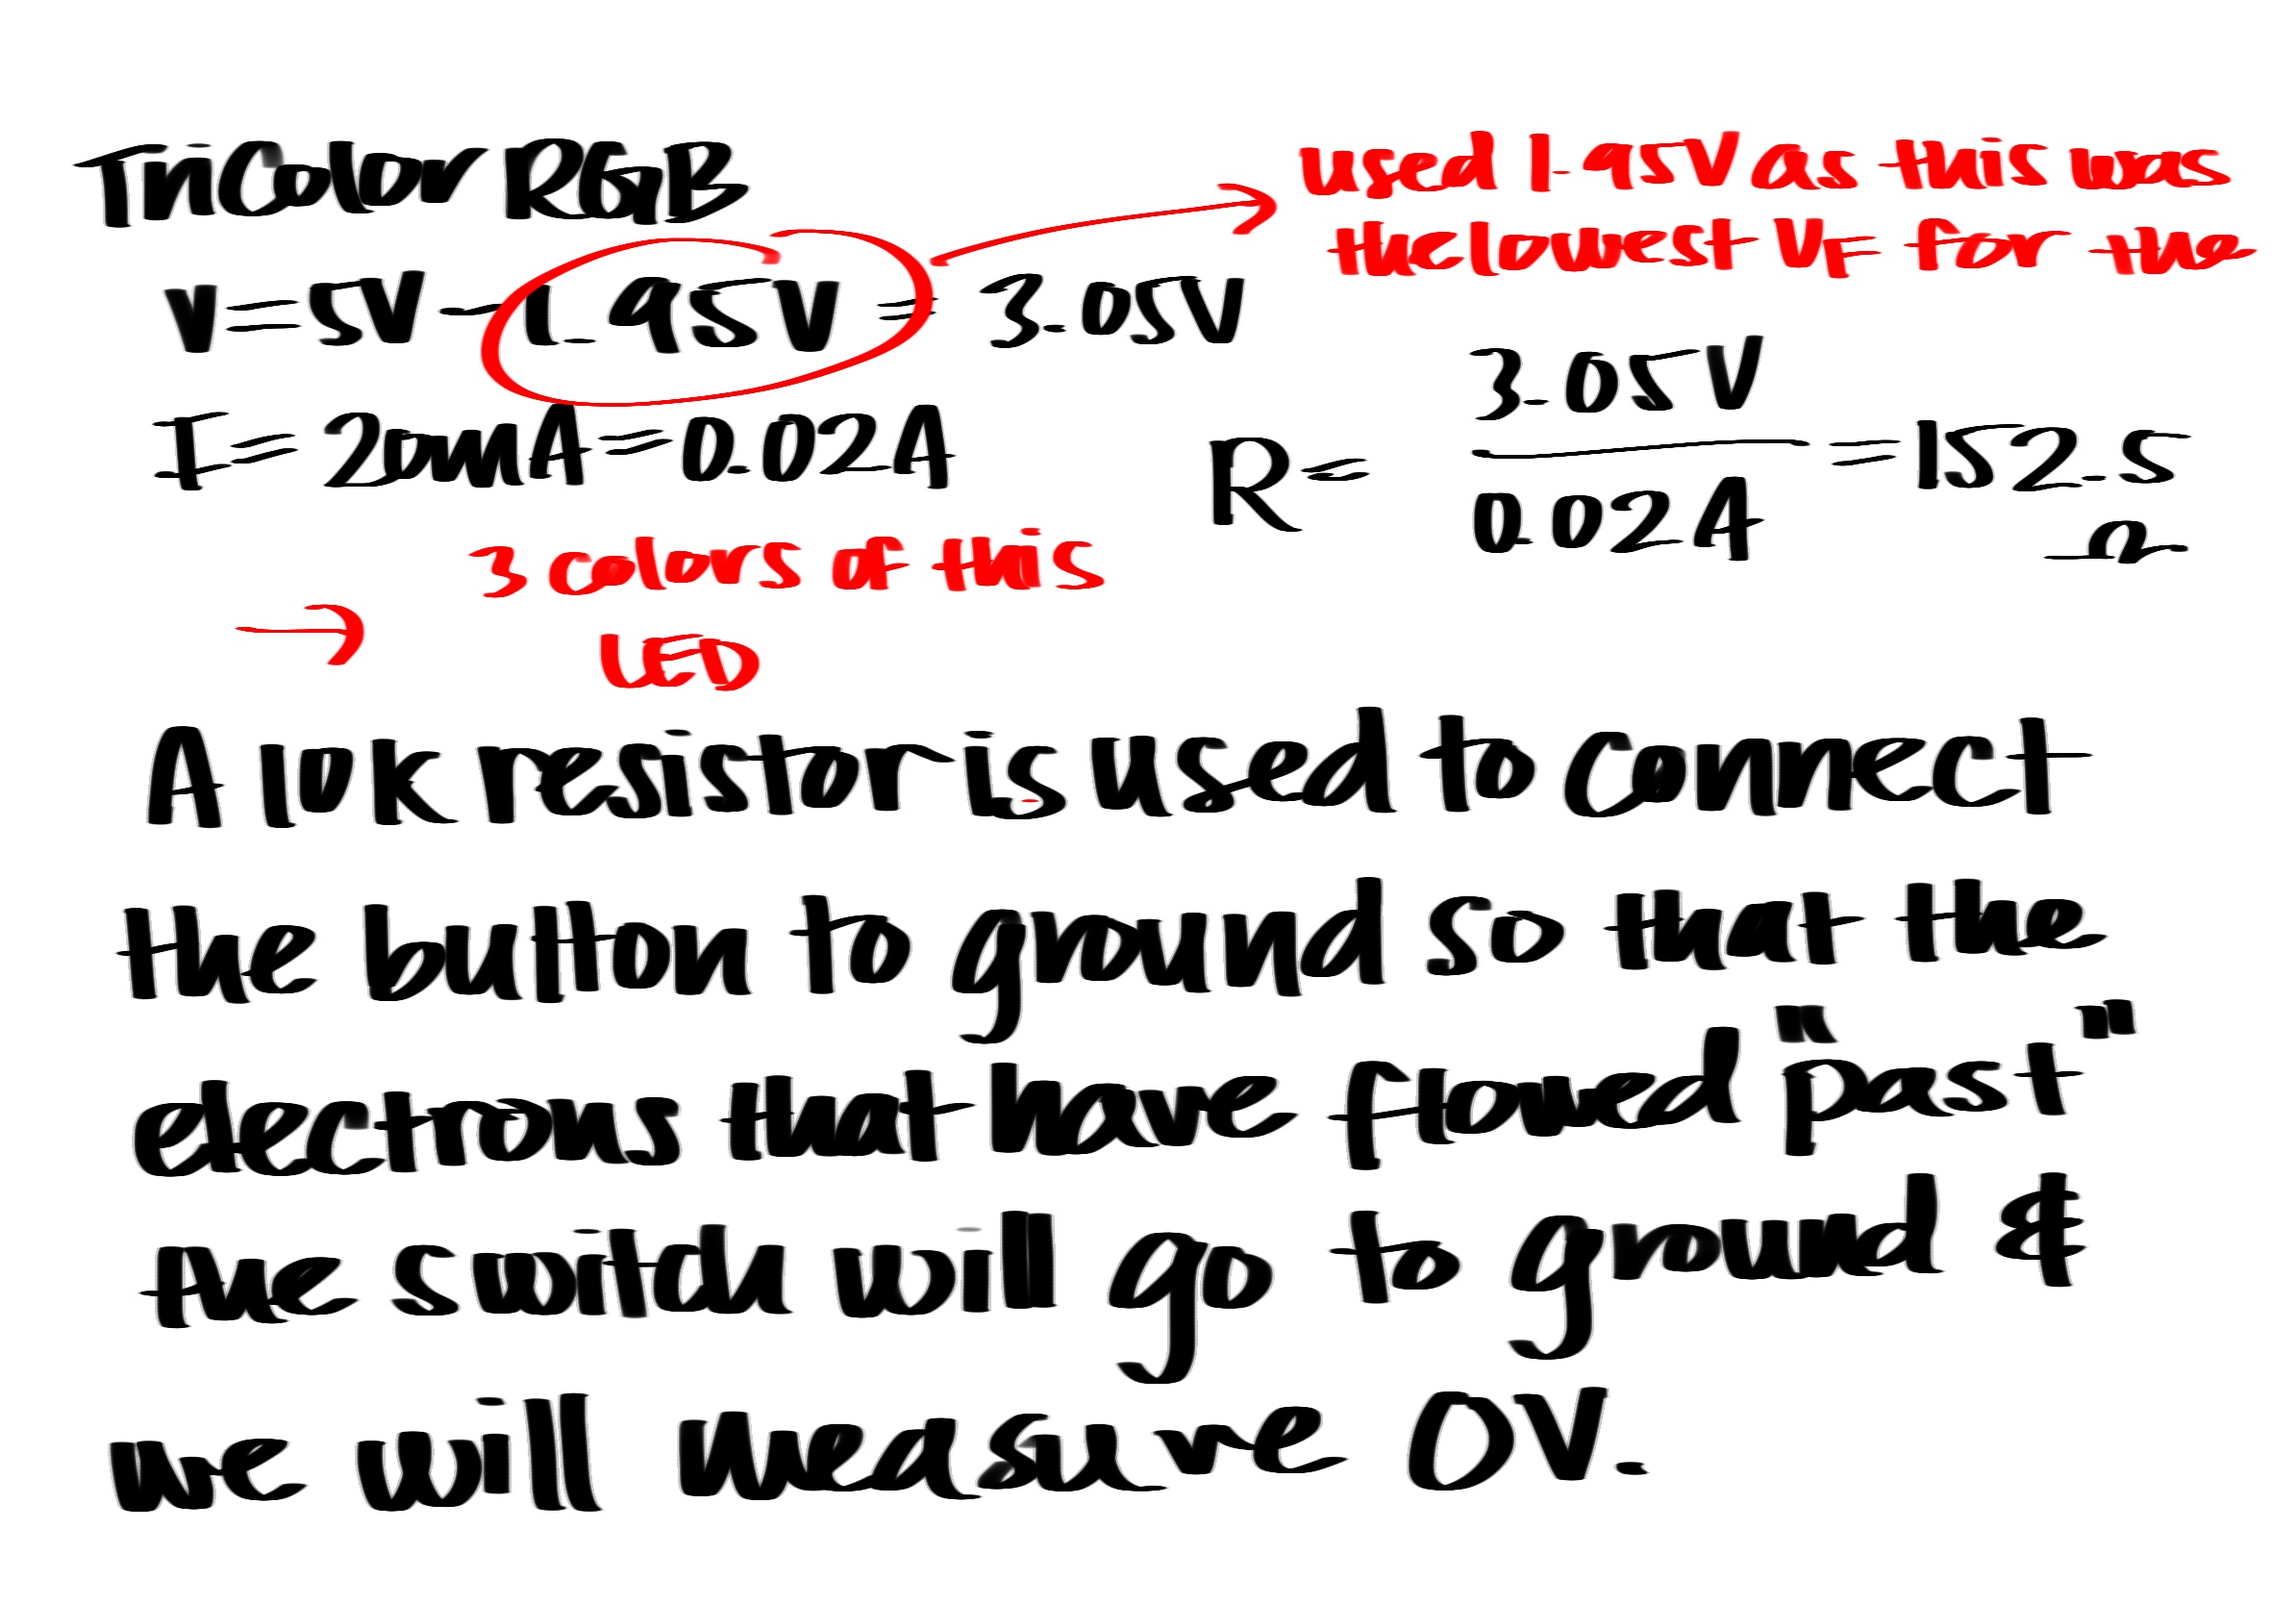 TriColor RGB
V=5V-1.95V = 3.05V
used 1.95V as this was
the lowest VF for the
I= 20mA=0.02A
R= 3.05V / 0.02A =152.5
Ω
→ 3 colors of this
LED
A 10k resistor is used to connect
the button to ground so that the
electrons that have flowed "past"
the switch will go to ground &
we will measure 0V.